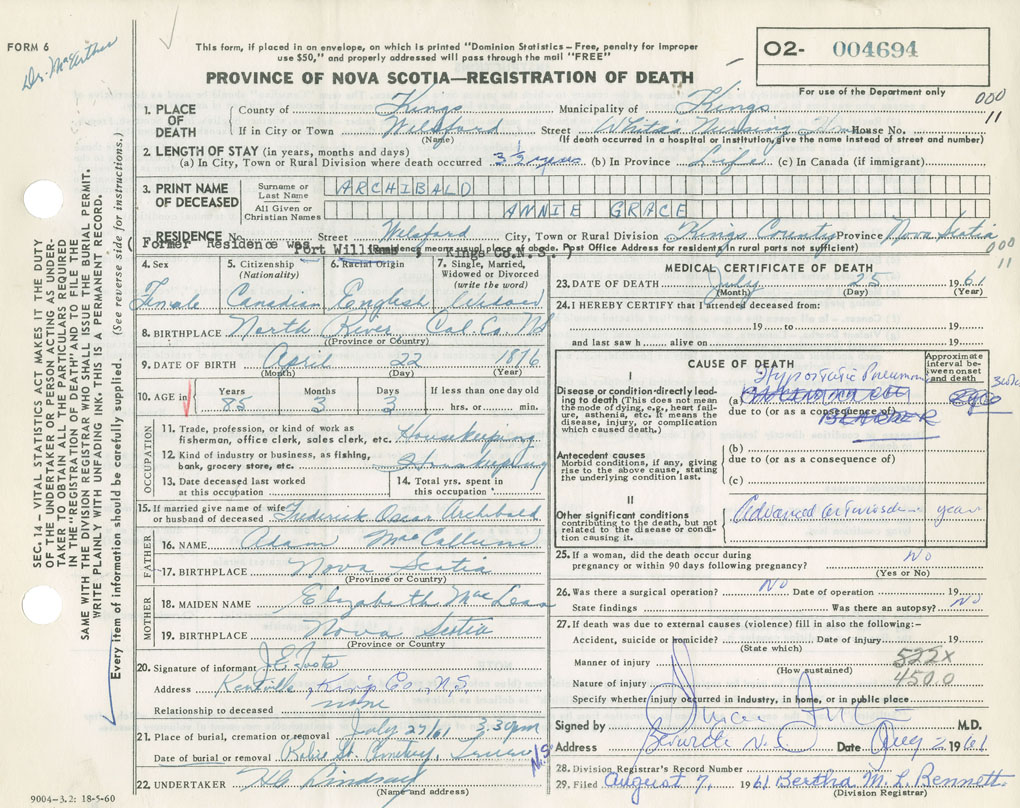 FORM 6
Dr. McArthur
This form, if placed in an envelope, on which is printed "Dominion Statistics – Free, penalty for improper
use $50," and properly addressed will pass through the mail "FREE"
PROVINCE OF NOVA SCOTIA—REGISTRATION OF DEATH
O2- 004694
For use of the Department only
000
11
SEC. 14 – VITAL STATISTICS ACT MAKES IT THE DUTY
OF THE UNDERTAKER OR PERSON ACTING AS UNDER-
TAKER TO OBTAIN ALL THE PARTICULARS REQUIRED
IN THE "REGISTRATION OF DEATH" AND TO FILE THE
SAME WITH THE DIVISION REGISTRAR WHO SHALL ISSUE THE BURIAL PERMIT.
WRITE PLAINLY WITH UNFADING INK. THIS IS A PERMANENT RECORD.
Every item of information should be carefully supplied. (See reverse side for instructions.)
1. PLACE OF DEATH
County of Kings Municipality of Kings
If in City or Town Welsford Street Nursing House No.
(Name) (If death occurred in a hospital or institution, give the name instead of street and number)
2. LENGTH OF STAY (in years, months and days)
(a) In City, Town or Rural Division where death occurred 3½ years (b) In Province Life (c) In Canada (if immigrant)
3. PRINT NAME OF DECEASED
Surname or Last Name ARCHIBALD
All Given or Christian Names ANNIE GRACE
RESIDENCE No. Street Welsford City, Town or Rural Division Kings County Province Nova Scotia
(Residence means usual place of abode. Post Office Address for residents in rural parts sufficient)
( Former Residence was Port Williams, Kings Co. N.S. )
000
11
4. Sex Female
5. Citizenship (Nationality) Canadian
6. Racial Origin English
7. Single, Married, Widowed or Divorced (write the word) Widow
8. BIRTHPLACE North River Col. Co. NS
(Province or Country)
9. DATE OF BIRTH April 22 1876
(Month) (Day) (Year)
10. AGE in Years 85 Months 3 Days 3 If less than one day old hrs. or min.
OCCUPATION
11. Trade, profession, or kind of work as
fisherman, office clerk, sales clerk, etc. Housekeeping
12. Kind of industry or business, as fishing,
bank, grocery store, etc. Housekeeping
13. Date deceased last worked
at this occupation
14. Total yrs. spent in
this occupation
15. If married give name of wife
or husband of deceased Frederick Oscar Archibald
FATHER
16. NAME Adam MacCallum
17. BIRTHPLACE Nova Scotia
(Province or Country)
MOTHER
18. MAIDEN NAME Elizabeth MacLean
19. BIRTHPLACE Nova Scotia
(Province or Country)
20. Signature of informant J.E. Foote
Address Kentville, Kings Co., N.S.
Relationship to deceased none
21. Place of burial, cremation or removal July 27/61 3.30 pm
Date of burial or removal Robie St. Cemetery, Truro N.S.
22. UNDERTAKER H.G. Lindsay
(Name and address)
9004–3.2: 18-5-60
MEDICAL CERTIFICATE OF DEATH
23. DATE OF DEATH July 25 1961
(Month) (Day) (Year)
24. I HEREBY CERTIFY that I attended deceased from:
19 to 19
and last saw h alive on 19
CAUSE OF DEATH
Approximate interval between onset and death
I
Disease or condition directly lead-
ing to death (This does not mean
the mode of dying, e.g., heart fail-
ure, asthenia, etc. It means the
disease, injury, or complication
which caused death.)
Hypostatic Pneumonia
(a)
due to (or as a consequence of)
Antecedent causes
Morbid conditions, if any, giving
rise to the above cause, stating
the underlying condition last.
(b)
due to (or as a consequence of)
(c)
II
Other significant conditions
contributing to the death, but not
related to the disease or condi-
tion causing it.
Advanced years
25. If a woman, did the death occur during
pregnancy or within 90 days following pregnancy? No
(Yes or No)
26. Was there a surgical operation? No Date of operation 19
State findings Was there an autopsy? No
27. If death was due to external causes (violence) fill in also the following:–
Accident, suicide or homicide? Date of Injury 19
(State which)
Manner of injury 522X
(How sustained)
Nature of injury 450.0
Specify whether injury occurred in industry, in home, or in public place
Signed by M.D.
Address Berwick N.S. Date Aug 2 1961
28. Division Registrar's Record Number
29. Filed August 7, 1961 Bertha M. L. Bennett
(Division Registrar)